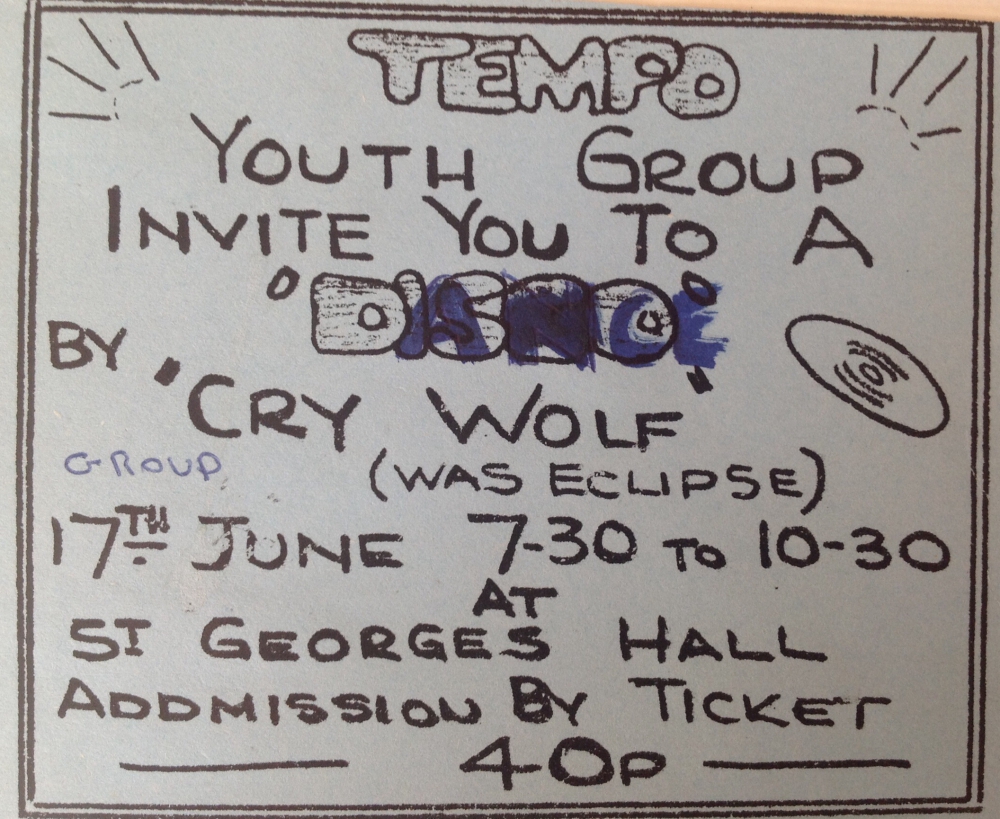 TEMPO
YOUTH GROUP
INVITE YOU TO A
'DISCO'
DANCE
BY
"CRY WOLF"
GROUP
(WAS ECLIPSE)
17TH JUNE 7-30 TO 10-30
AT
ST GEORGES HALL
ADDMISSION BY TICKET
40P